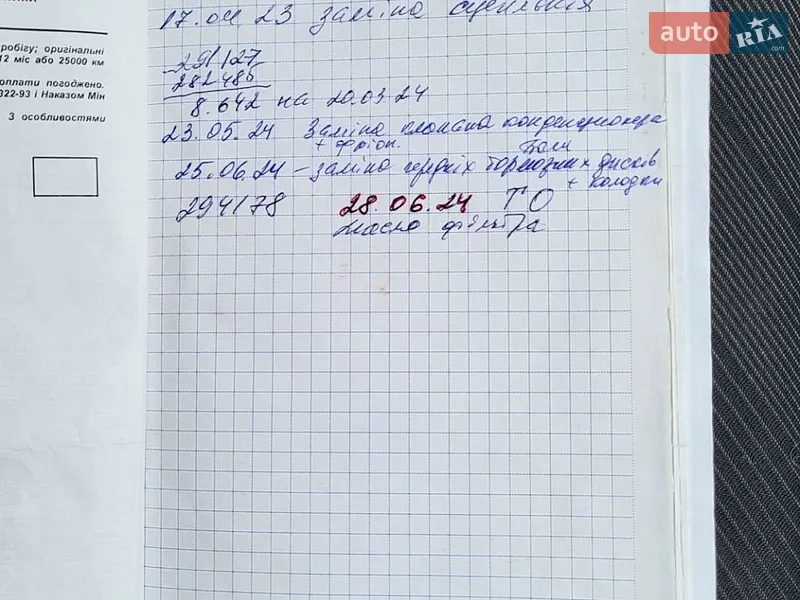 17.04 23 заміна сцепління
291127
282485
8.642 на 20.03.24
23.05.24 Заміна клапана конденціонера
+ фріон.
25.06.24 – заміна передніх тормозних дисків
+ колодки
294178 28.06.24 ТО
масло фільтра
робігу; оригінальні
12 міс або 25000 км
оплати погоджено.
322-93 і Наказом Мін
З особливостями
auto RIA
.com